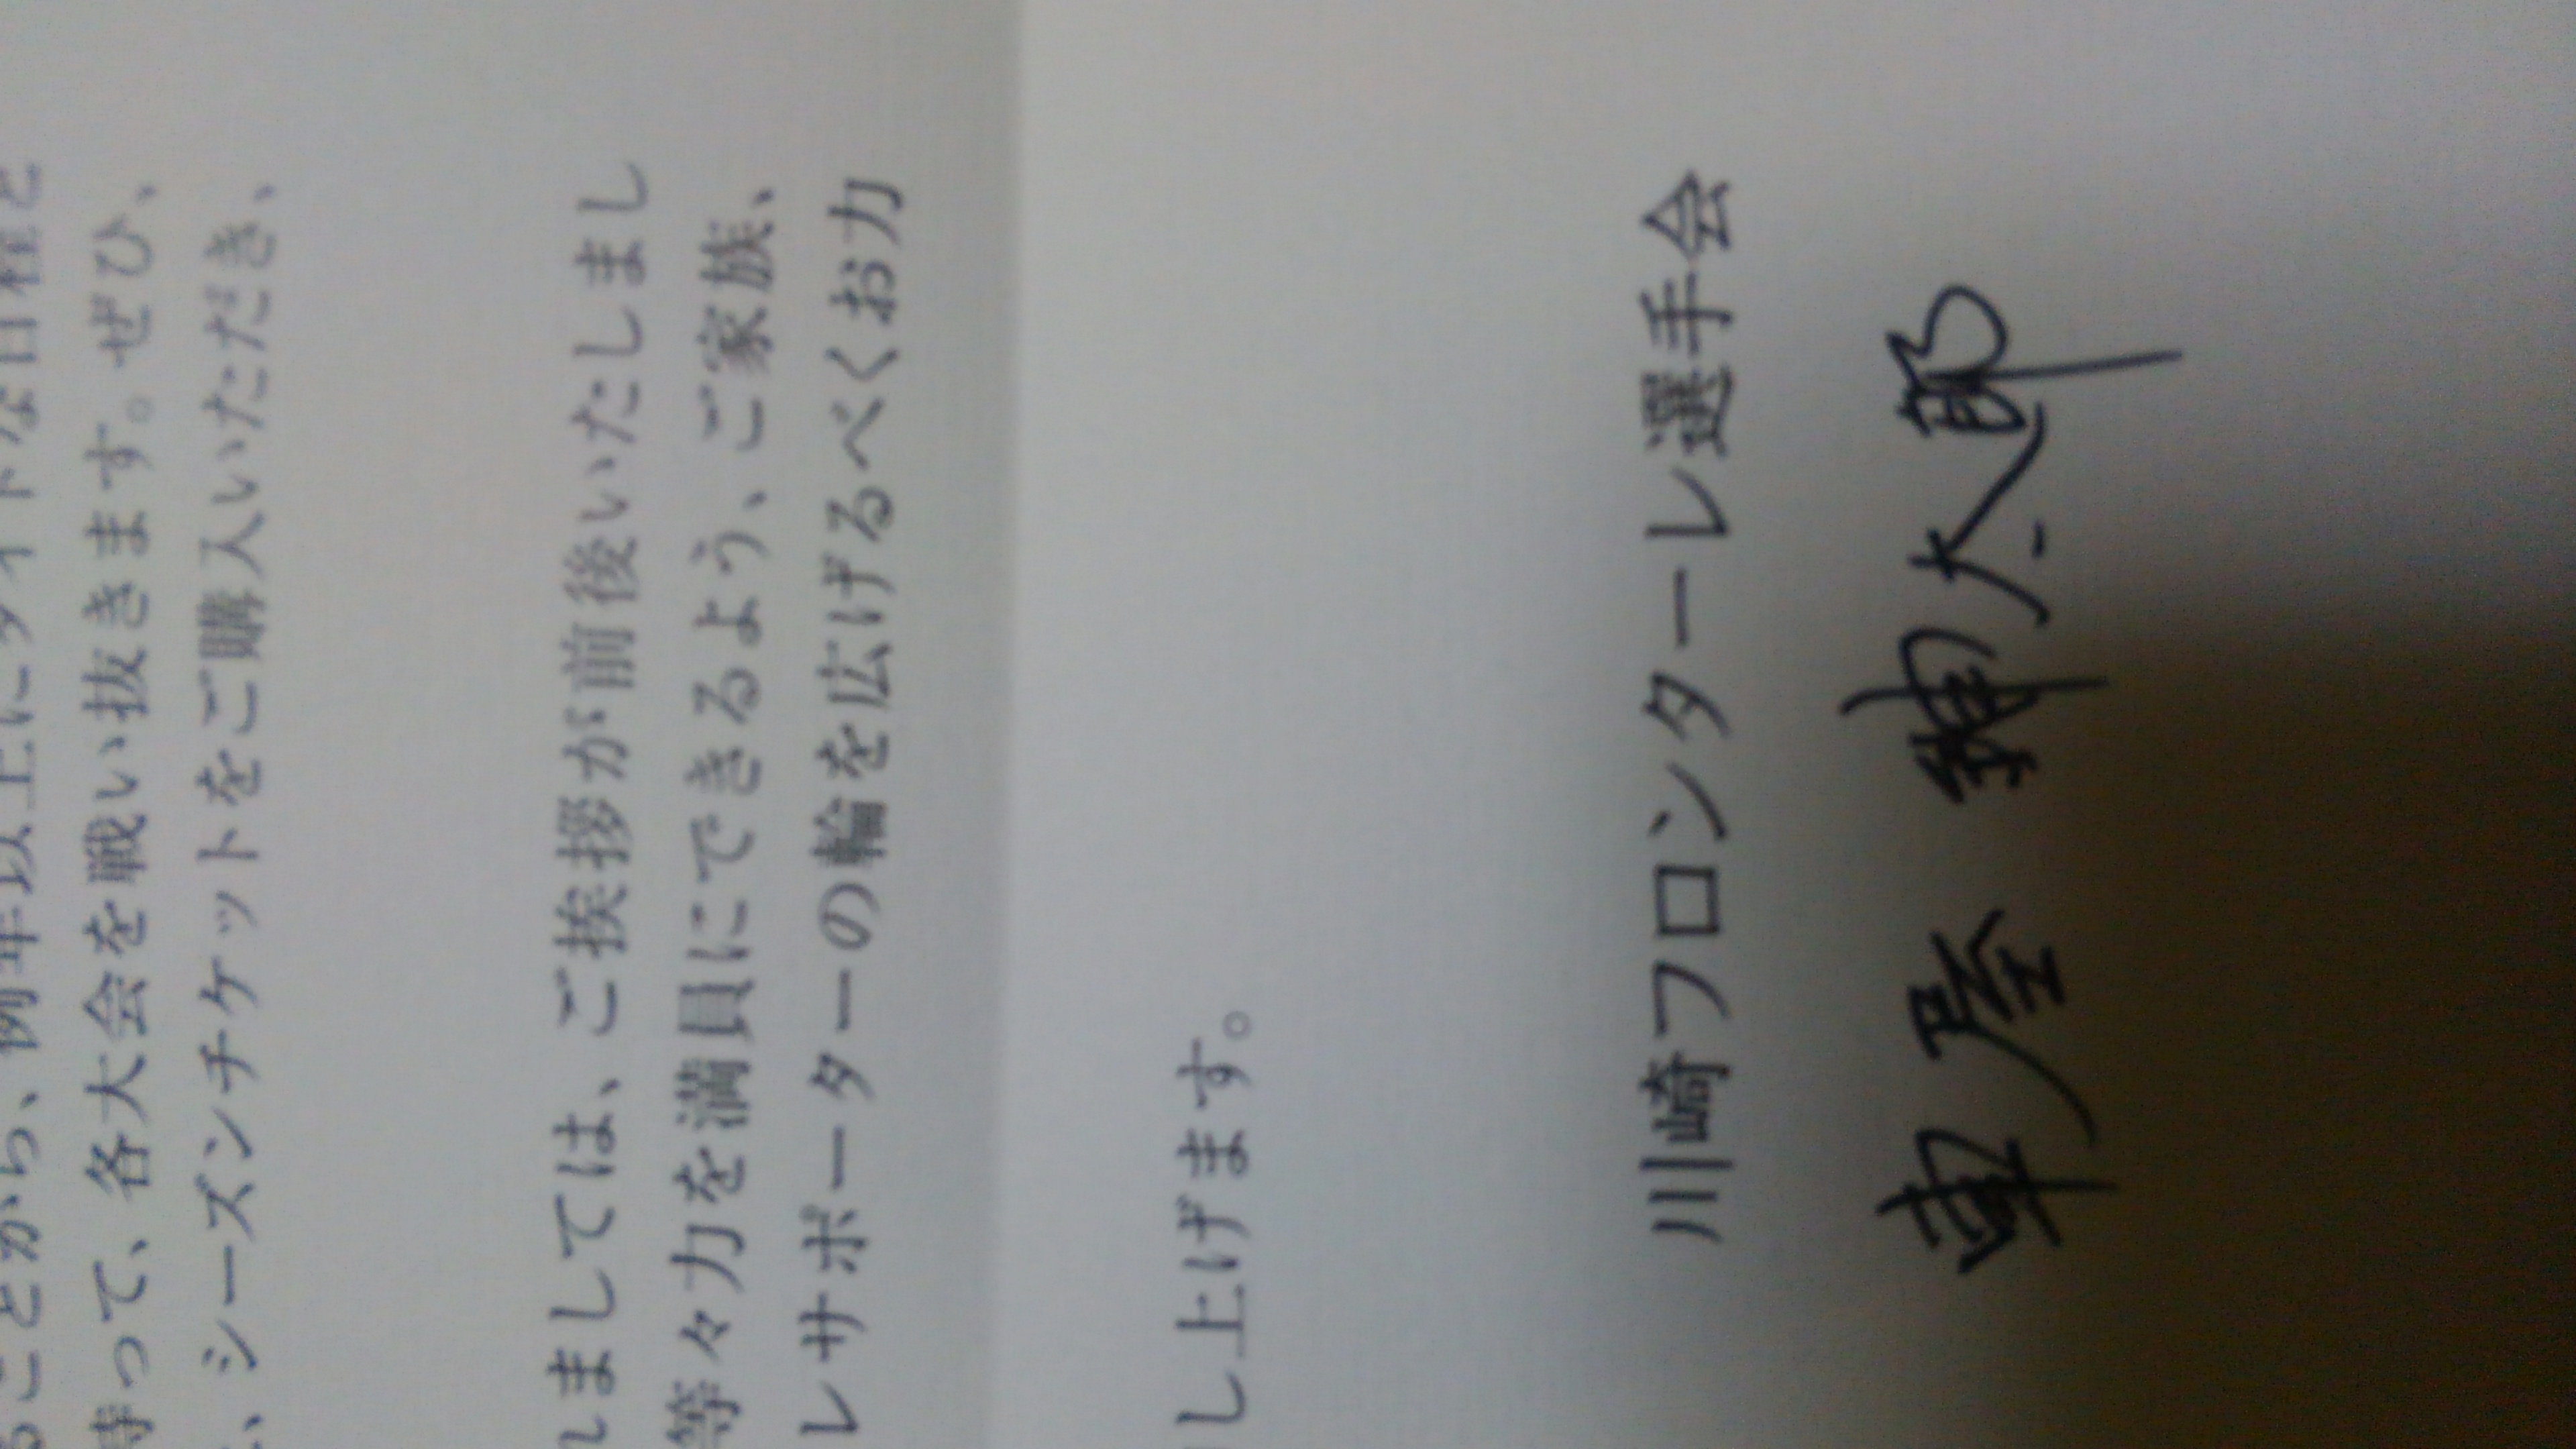 ることから、例年以上にタイトな日程と
持って、各大会を戦い抜きます。ぜひ、
、シーズンチケットをご購入いただき、
れましては、ご挨拶が前後いたしまし
等々力を満員にできるよう、ご家族、
レサポーターの輪を広げるべくお力
し上げます。
川崎フロンターレ選手会
車屋 紳太郎